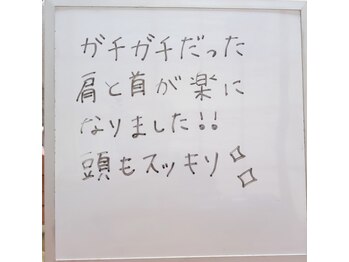 ガチガチだった
肩と首が楽に
なりました!!
頭もスッキリ✧✧